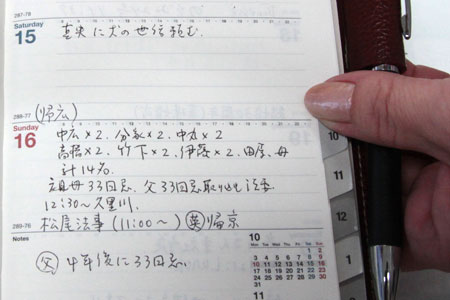 287-78
Saturday
15
真央に犬の世話頼む.
289-77
(帰広)
Sunday
16
中広×2. 分家×2. 中丸×2
高橋×2. 竹下×2. 伊藤×2. 田屋. 母
計14名.
祖母33回忌. 父33回忌取り越し法要
12:30〜久里川.
289-76
松尾法事(11:00〜) 帰京
Notes
父 4年後に33回忌.
10
Mon Tue Wed Thu Fri Sat Sun
1 2
3 4 5 6 7 8 9
10 11 12 13 14 15 16
17 18 19 20 21 22 23
24 25 26 27 28 29 30
31
11
10
11
12
1
2